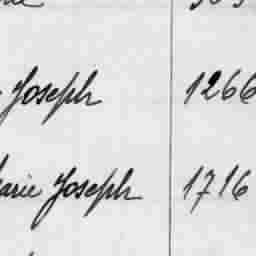 Joseph 1266
arie Joseph 1716